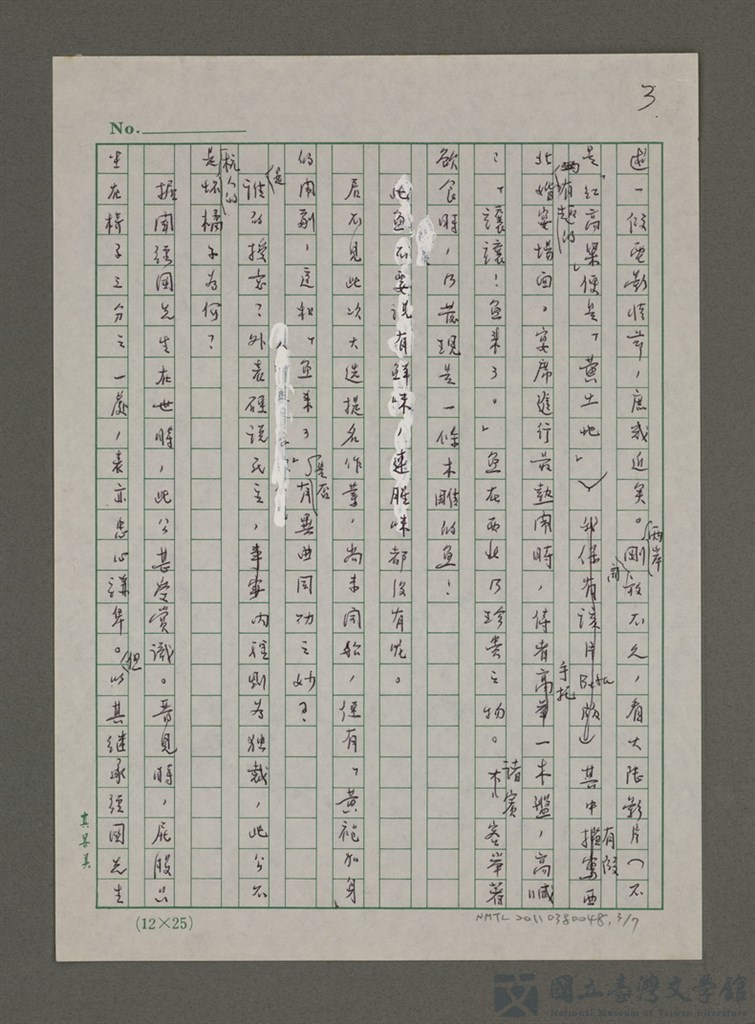 3
No.
述一段電影情节,庶或近矣。兩岸剛開放不久,看大陸影片(不
是「紅高粱」便是「黃土地」)我保有該片Beta版)其中有段描寫西
北婚宴場面。有趣的宴席進行最熱鬧時,侍者高舉手托一木盤,高喊
:「讓讓!魚來了。」魚在西北乃珍貴之物。諸賓客举著
欲食時,乃發現是一條木雕的魚!
此魚不要說有鮮味,連腥味都沒有呢。
君不見此次大選提名作業,尚未開始,便有「黃袍加身
的鬧劇,這和「魚來了」是否有異曲同功之妙?
是誰的授意?外表硬說民主,事實內裡則為独裁,此公不
是杭人的坏橘子為何?
據聞經國先生在世時,此公甚受賞識。晉見時,屁股只
坐在椅子三分之一處,表示忠心謙卑。但以其继承經國先生
(12×25)
NMTL 20110380048, 3/7
國立臺灣文學館
National Museum of Taiwan Literature